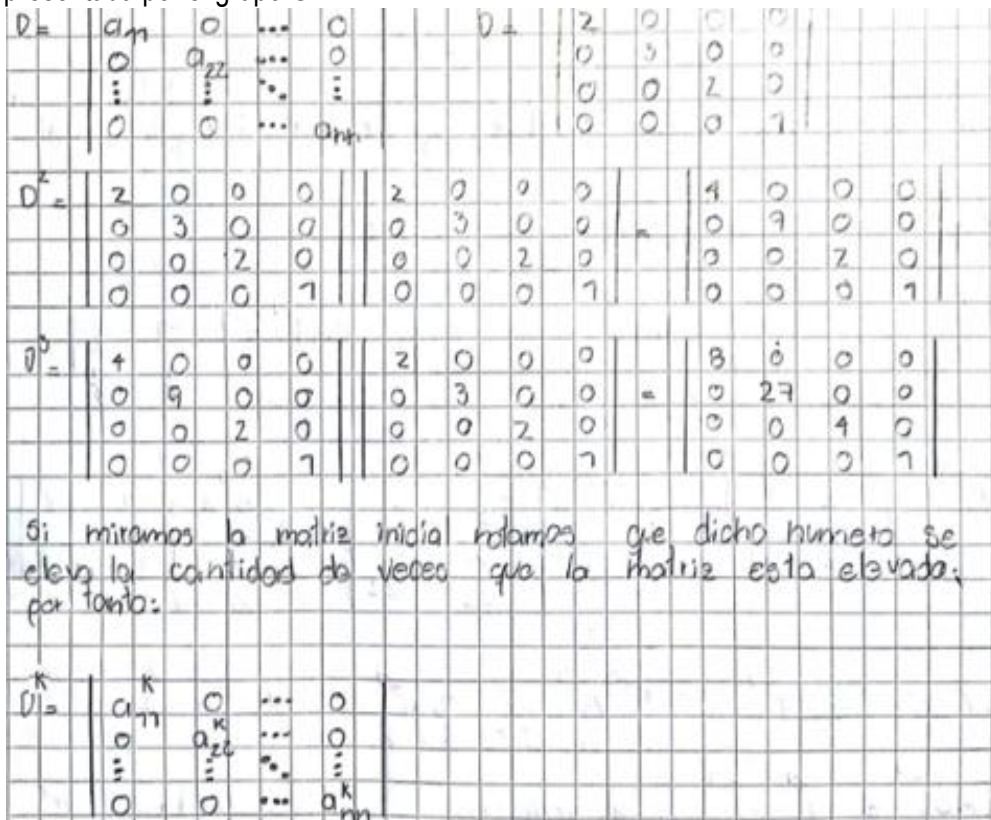 D = | a₁₁ 0 ... 0 D = | 2 0 0 0
0 a₂₂ ... 0 0 3 0 0
⋮ ⋮ ⋱ ⋮ 0 0 2 0
0 0 ... aₙₙ | 0 0 0 1 |
D² = | 2 0 0 0 | | 2 0 0 0 | = | 4 0 0 0
0 3 0 0 0 3 0 0 0 9 0 0
0 0 2 0 0 0 2 0 0 0 2 0
0 0 0 1 0 0 0 1 0 0 0 1 |
D³ = | 4 0 0 0 | | 2 0 0 0 | = | 8 0 0 0
0 9 0 0 0 3 0 0 0 27 0 0
0 0 2 0 0 0 2 0 0 0 4 0
0 0 0 1 0 0 0 1 0 0 0 1 |
Si miramos la matriz inicial notamos que dicho numero se
eleva la cantidad de veces que la matriz esta elevada;
por tanto:
Dᵏ = | a₁₁ᵏ 0 ... 0 |
0 a₂₂ᵏ ... 0
⋮ ⋮ ⋱ ⋮
0 0 ... aₙₙᵏ